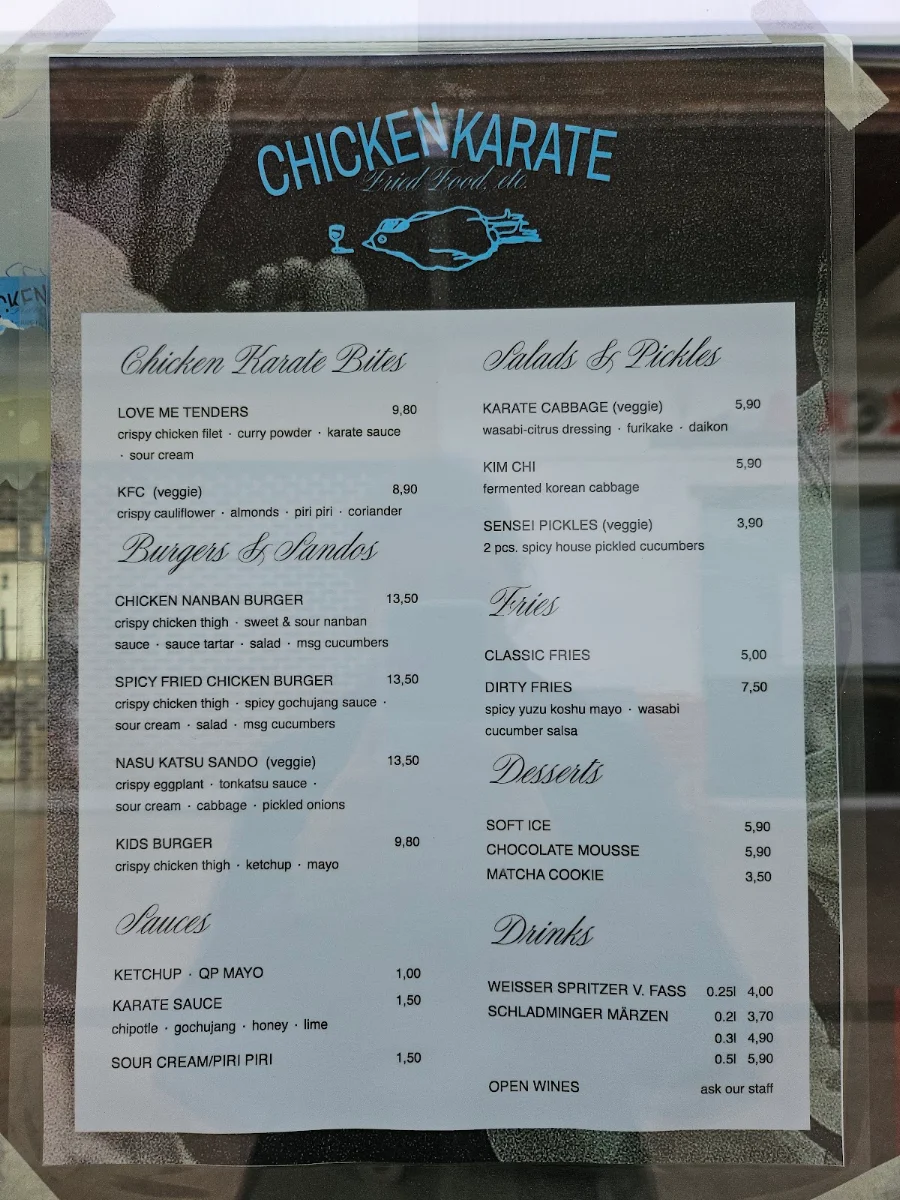 CHICKEN KARATE
Fried Food, etc.
Chicken Karate Bites
LOVE ME TENDERS 9,80
crispy chicken filet · curry powder · karate sauce
· sour cream
KFC (veggie) 8,90
crispy cauliflower · almonds · piri piri · coriander
Burgers & Sandos
CHICKEN NANBAN BURGER 13,50
crispy chicken thigh · sweet & sour nanban
sauce · sauce tartar · salad · msg cucumbers
SPICY FRIED CHICKEN BURGER 13,50
crispy chicken thigh · spicy gochujang sauce ·
sour cream · salad · msg cucumbers
NASU KATSU SANDO (veggie) 13,50
crispy eggplant · tonkatsu sauce ·
sour cream · cabbage · pickled onions
KIDS BURGER 9,80
crispy chicken thigh · ketchup · mayo
Sauces
KETCHUP · QP MAYO 1,00
KARATE SAUCE 1,50
chipotle · gochujang · honey · lime
SOUR CREAM/PIRI PIRI 1,50
Salads & Pickles
KARATE CABBAGE (veggie) 5,90
wasabi-citrus dressing · furikake · daikon
KIM CHI 5,90
fermented korean cabbage
SENSEI PICKLES (veggie) 3,90
2 pcs. spicy house pickled cucumbers
Fries
CLASSIC FRIES 5,00
DIRTY FRIES 7,50
spicy yuzu koshu mayo · wasabi
cucumber salsa
Desserts
SOFT ICE 5,90
CHOCOLATE MOUSSE 5,90
MATCHA COOKIE 3,50
Drinks
WEISSER SPRITZER V. FASS 0.25l 4,00
SCHLADMINGER MÄRZEN 0.2l 3,70
0.3l 4,90
0.5l 5,90
OPEN WINES ask our staff